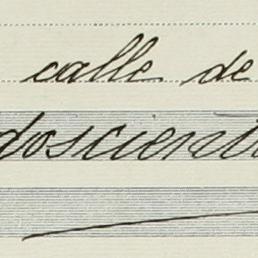 calle de
doscient